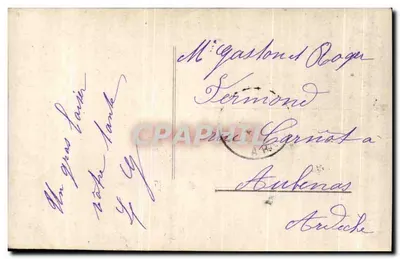 Un gros baiser
votre tante
Mr Gaston et Roger
Fermond
rue Carnot à
Aubenas
Ardèche
CPARAMA